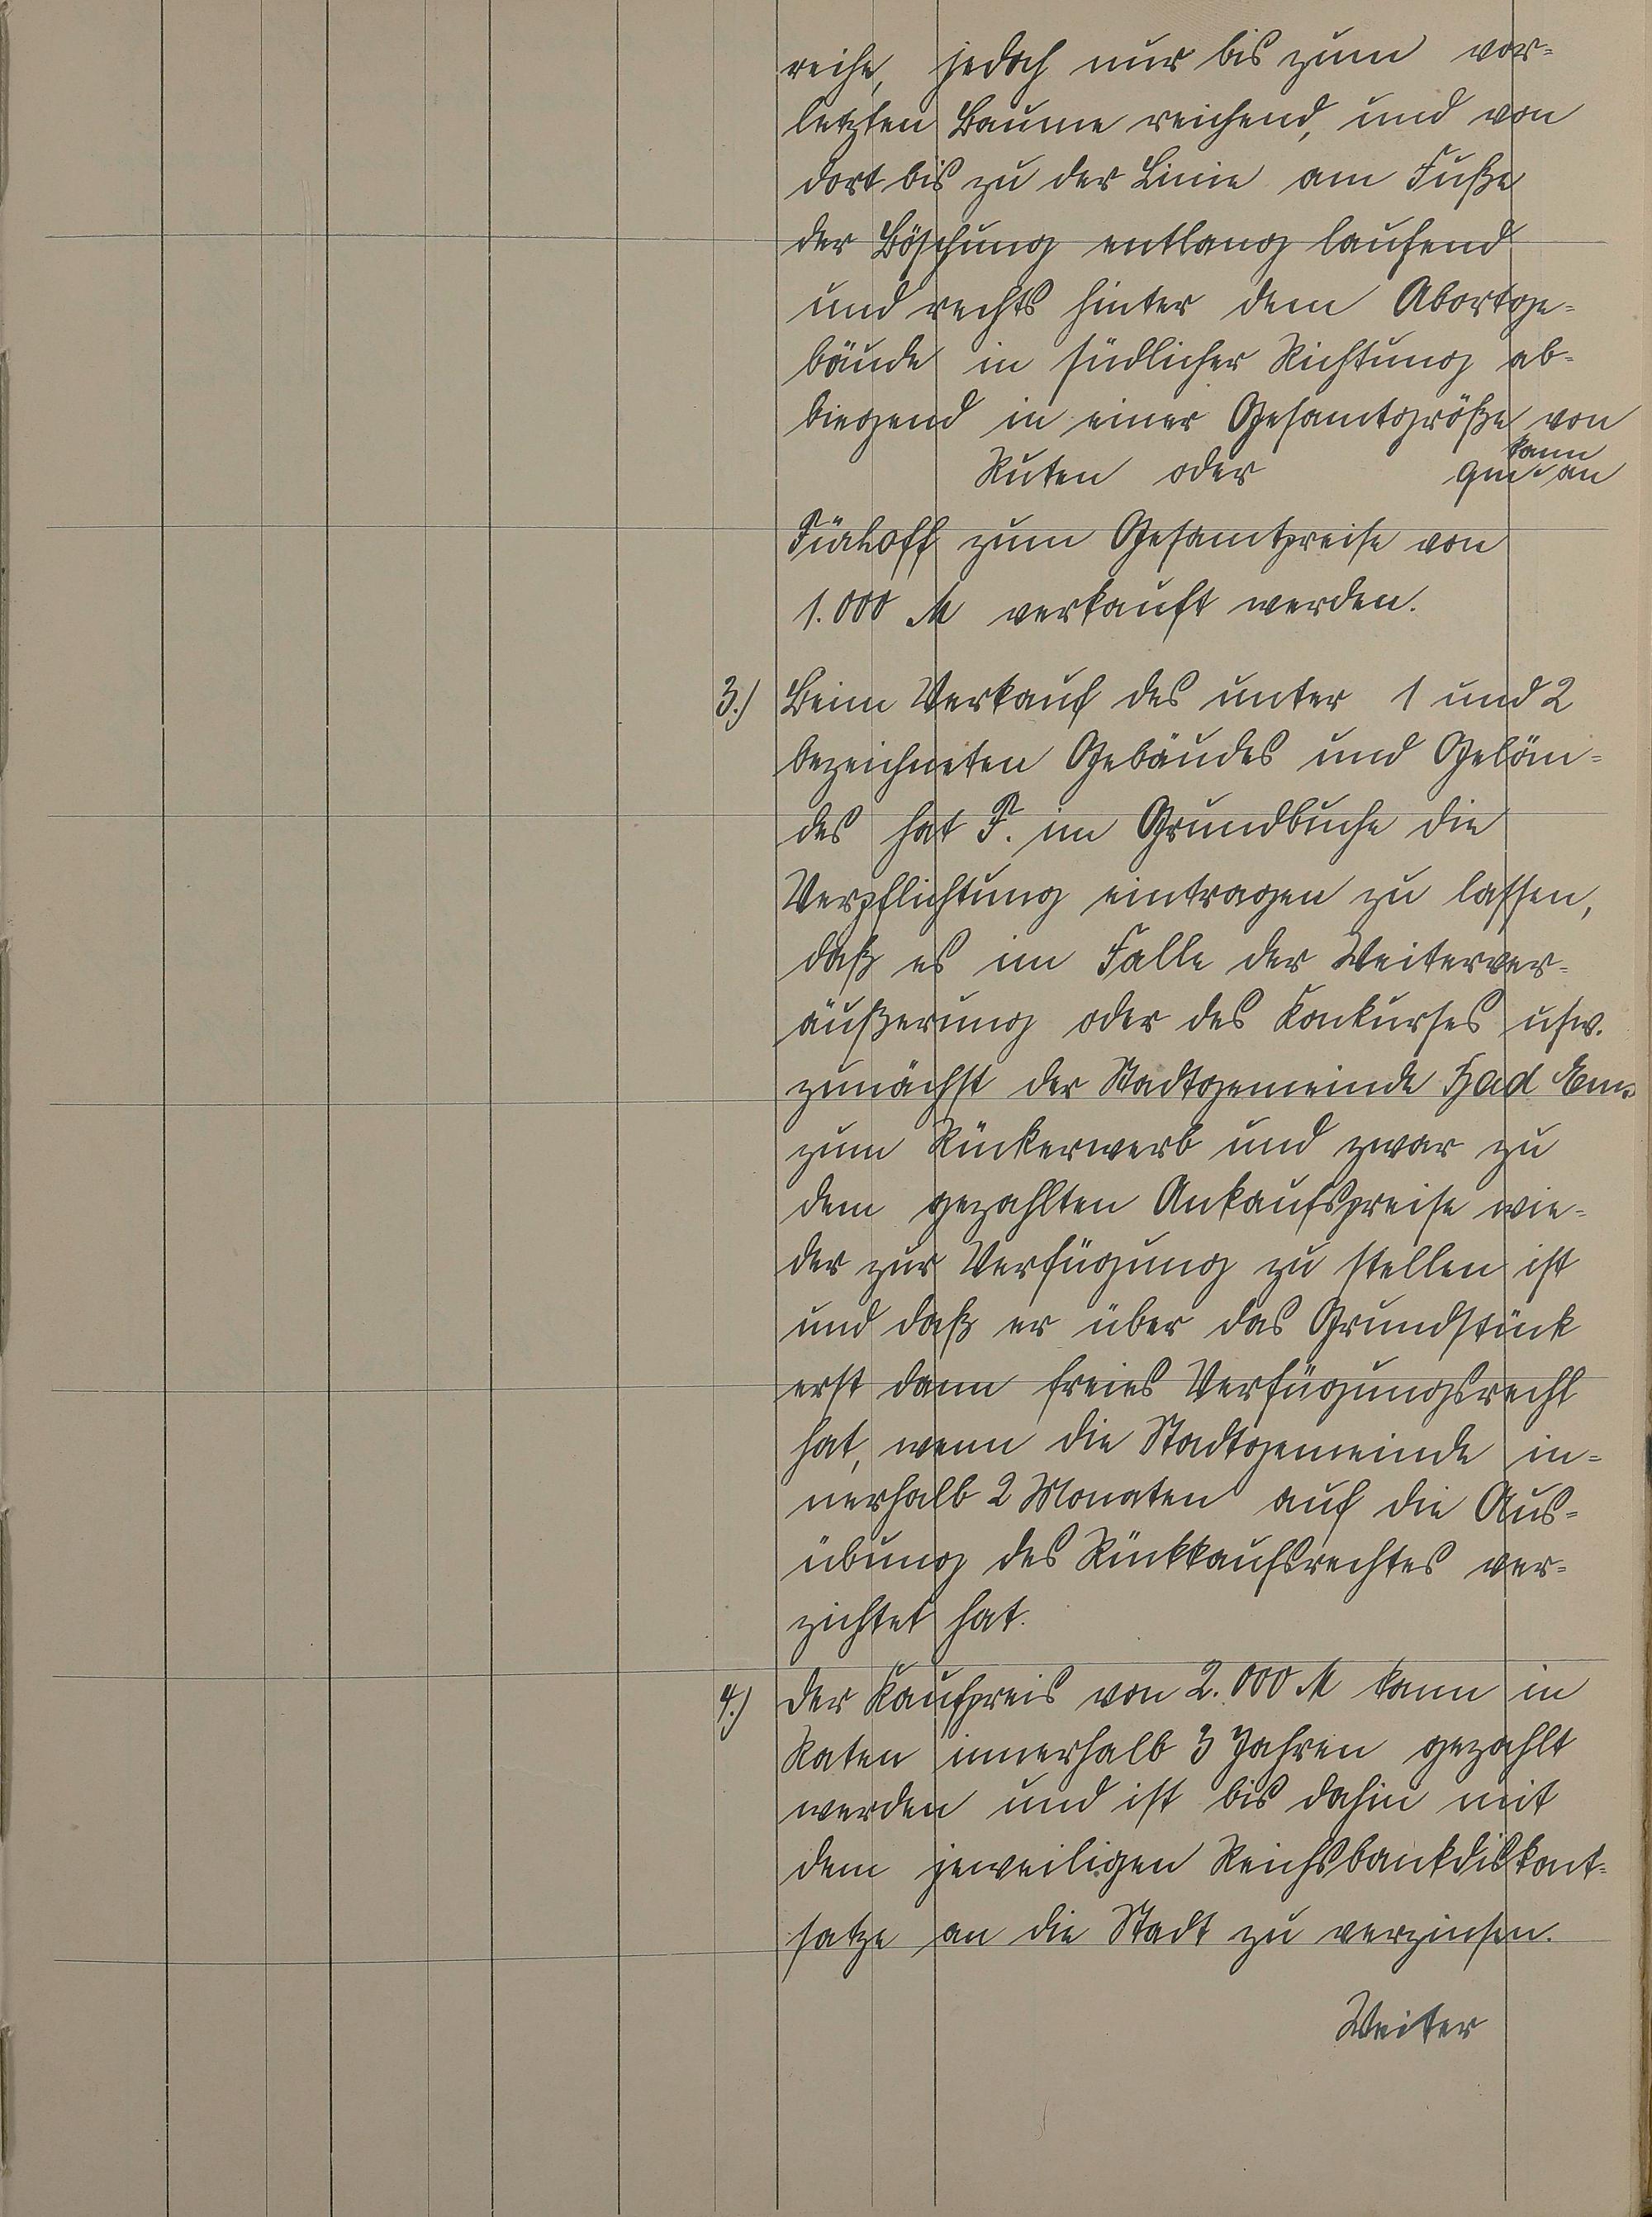 reihe, jedoch nur bis zum vor=
letzten Baume reichend, und von
dort bis zu der Linie am Fuße
der Böschung entlang laufend
und rechts hinter dem Abortge=
bäude in südlicher Richtung ab=
biegend in einer Gesamtgröße von
kann
Ruten oder qm an
zum Gesamtpreise von
1.000 M verkauft werden.
3.) Beim Verkauf des unter 1 und 2
bezeichneten Gebäudes und Gelän=
des hat F. im Grundbuche die
Verpflichtung eintragen zu lassen,
daß es im Falle der Weiterver=
äußerung oder des Konkurses usw.
zunächst der Stadtgemeinde Bad Ems
zum Rückerwerb und zwar zu
dem gezahlten Ankaufspreise wie=
der zur Verfügung zu stellen ist
und daß er über das Grundstück
erst dann freies Verfügungsrecht
hat, wenn die Stadtgemeinde in=
nerhalb 2 Monaten auf die Aus=
übung des Rückkaufsrechtes ver=
zichtet hat.
4.) Der Kaufpreis von 2.000 M kann in
Raten innerhalb 3 Jahren gezahlt
werden und ist bis dahin mit
dem jeweiligen Reichsbankdiskont=
satze an die Stadt zu verzinsen.
Weiter